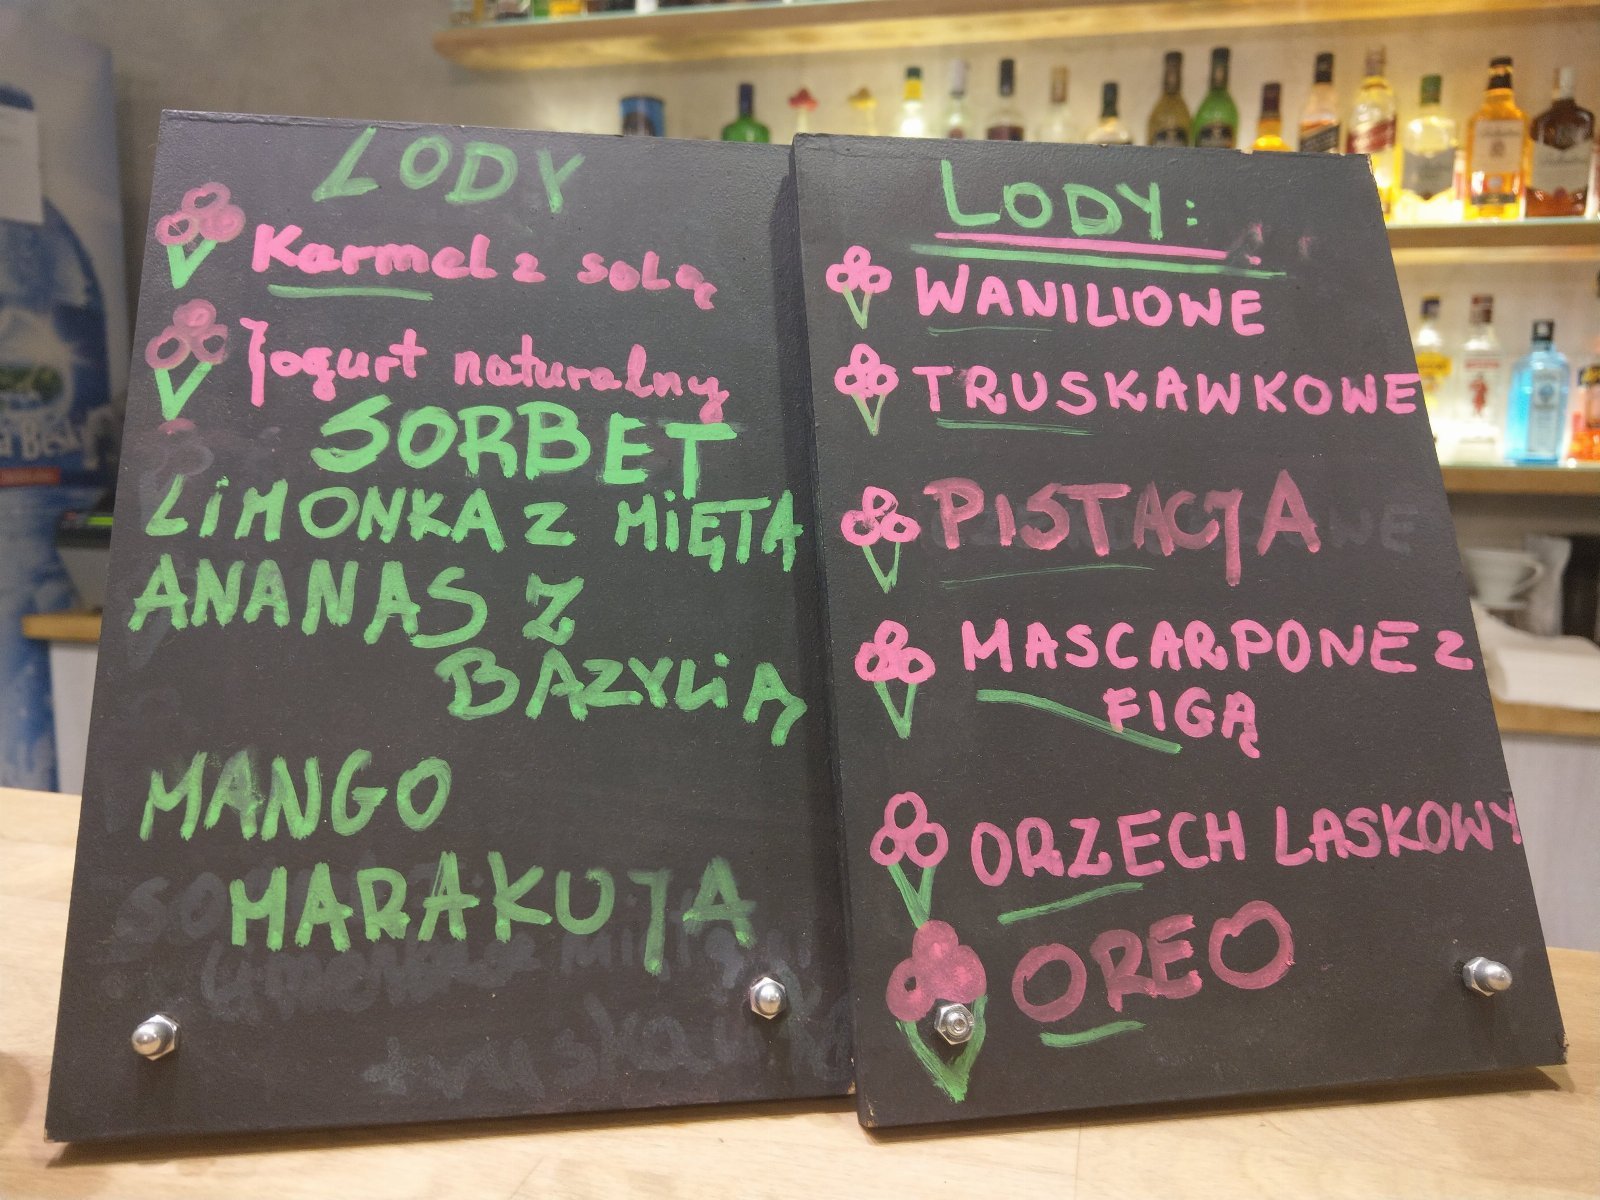 LODY
Karmel z solą
Jogurt naturalny
SORBET
LiMONKA z MiĘTĄ
ANANAS Z
BAZYLiĄ
MANGO
MARAKUJA
LODY:
WANILIOWE
TRUSKAWKOWE
PISTACJA
MASCARPONE z
FIGĄ
ORZECH LASKOWY
OREO